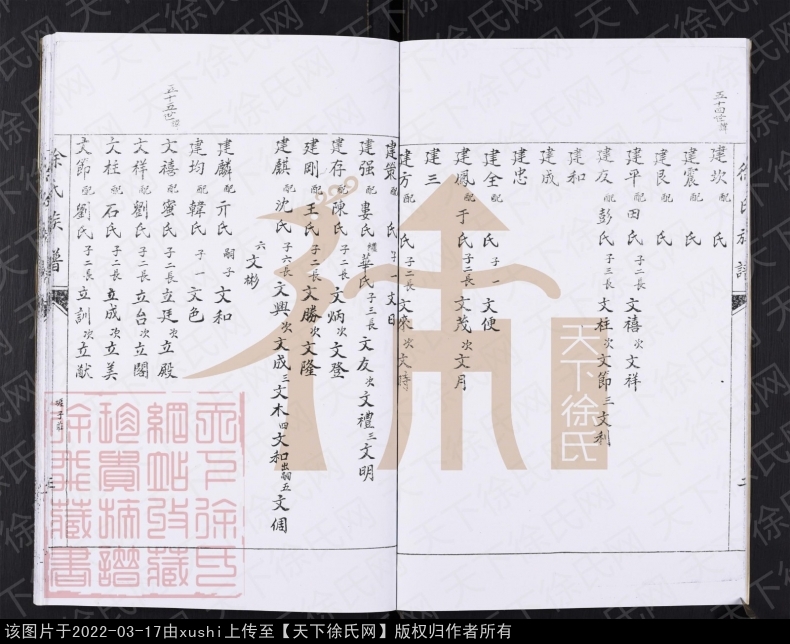 五十四世
徐氏族譜
建坎 配 氏
建震 配 氏
建艮 配 氏
建平 配 田氏 子二 長文禧 次文祥
建友 配 彭氏 子三 長文柱 次文節 三文利
建和
建成
建忠
建全 配 氏 子一 文便
建鳳 配 于氏 子二 長文茂 次文月
建三
建方 配 氏 子二 長文來 次文時
二
建策 配 氏 子一 文日
建强 配 婁氏 繼 華氏 子三 長文友 次文禮 三文明
建存 配 陳氏 子二 長文炳 次文登
建剛 配 王氏 子二 長文勝 次文隆
建麒 配 沈氏 子六 長文興 次文成 三文木 四文和 出嗣 五文倜
六文彬
五十五世
建麟 配 亓氏 嗣子 文和
建均 配 韓氏 子一 文色
文禧 配 甯氏 子二 長立廷 次立殿
文祥 配 劉氏 子二 長立台 次立閣
文柱 配 石氏 子二 長立成 次立美
文節 配 劉氏 子二 長立訓 次立猷
徐氏族譜
三
天下徐氏
天下徐氏
網站收藏
珍貴抺譜
徐飛藏書
天下徐氏网
该图片于2022-03-17由xushi上传至【天下徐氏网】版权归作者所有